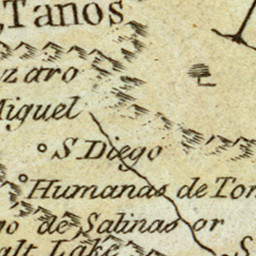 Tanos
zaro
Miguel
S Diego
Humanas de Tom
de Salinas or
alt Lake
S